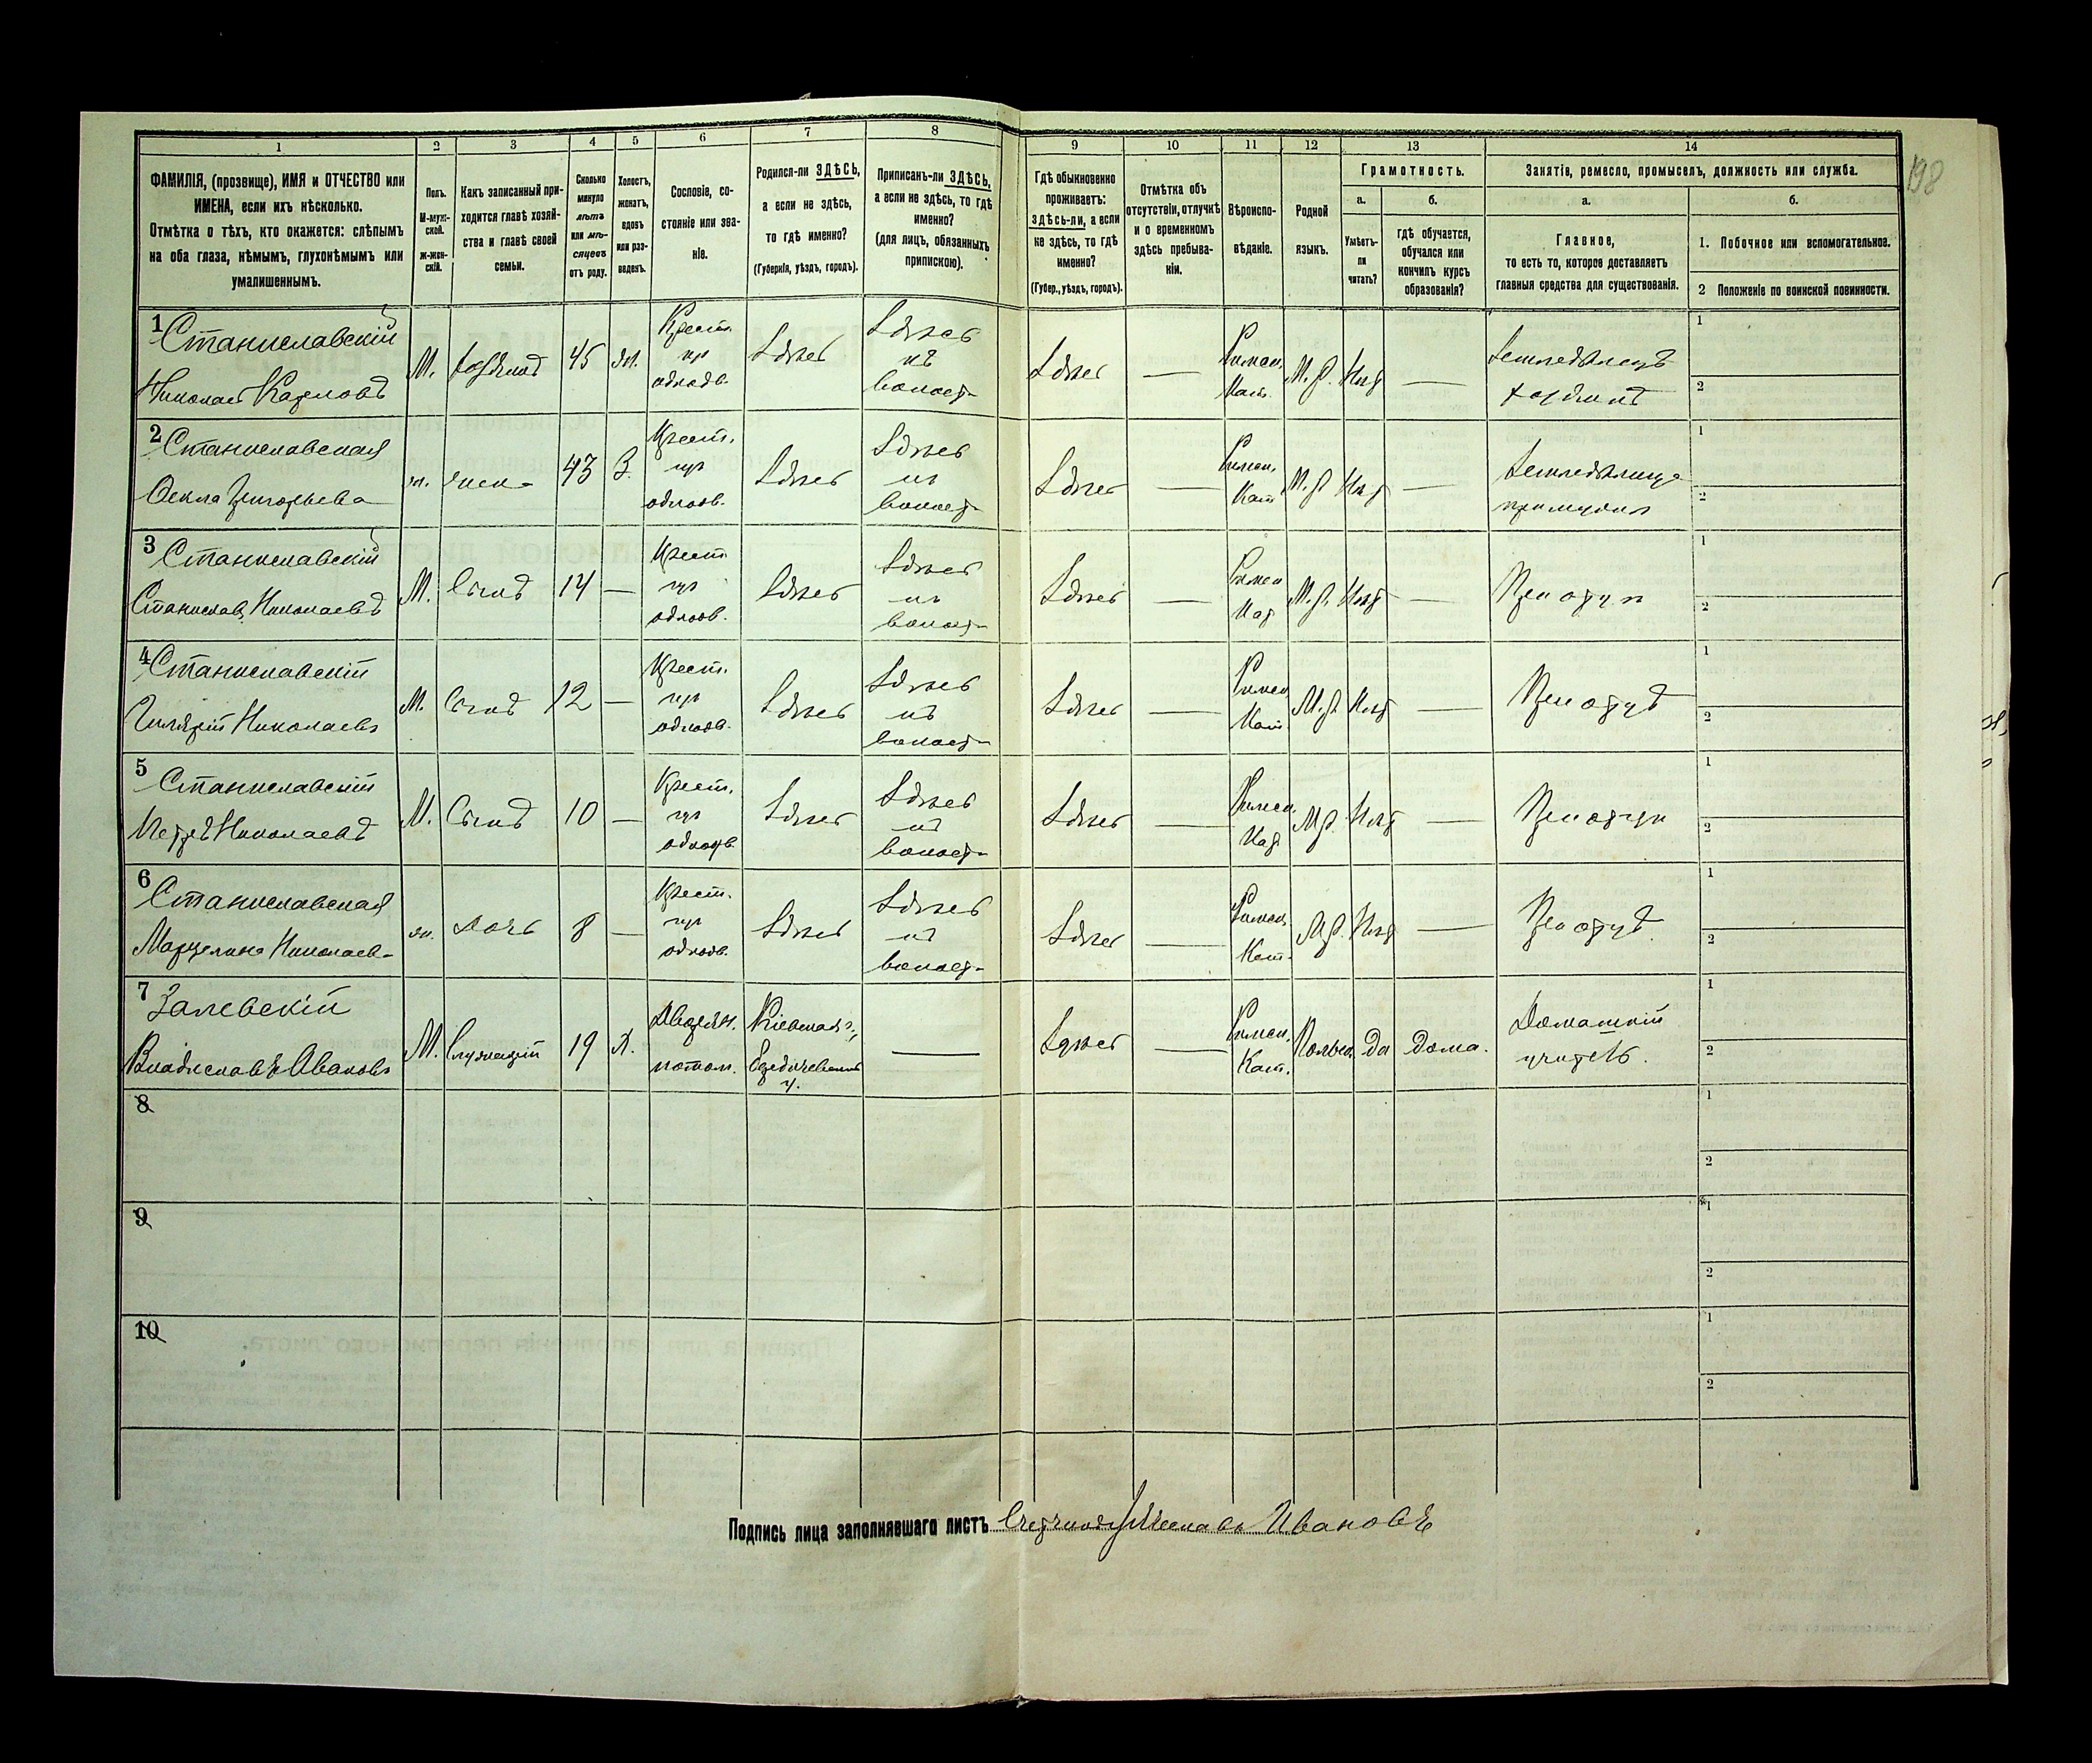 198
1 2 3 4 5 6 7 8 9 10 11 12 13 14
ФАМИЛІЯ, (прозвище), ИМЯ и ОТЧЕСТВО или
ИМЕНА, если ихъ нѣсколько.
Отмѣтка о тѣхъ, кто окажется: слѣпымъ
на оба глаза, нѣмымъ, глухонѣмымъ или
умалишеннымъ.
Полъ.
М-муж-
ской.
ж-жен-
скій.
Какъ записанный при-
ходится главѣ хозяй-
ства и главѣ своей
семьи.
Сколько
минуло
лѣтъ
или мѣ-
сяцевъ
отъ роду.
Холостъ,
женатъ,
вдовъ
или раз-
веденъ.
Сословіе, со-
стояніе или зва-
ніе.
Родился-ли ЗДѢСЬ,
а если не здѣсь,
то гдѣ именно?
(Губернія, уѣздъ, городъ).
Приписанъ-ли ЗДѢСЬ,
а если не здѣсь, то гдѣ
именно?
(для лицъ, обязанныхъ
припискою).
Гдѣ обыкновенно
проживаетъ:
здѣсь-ли, а если
не здѣсь, то гдѣ
именно?
(Губер., уѣздъ, городъ).
Отмѣтка объ
отсутствіи, отлучкѣ
и о временномъ
здѣсь пребыва-
ніи.
Вѣроиспо-
вѣданіе.
Родной
языкъ.
Грамотность.
а.
Умѣетъ-
ли
читать?
б.
гдѣ обучается,
обучался или
кончилъ курсъ
образованія?
Занятіе, ремесло, промыселъ, должность или служба.
а.
Главное,
то есть то, которое доставляетъ
главныя средства для существованія.
б.
1. Побочное или вспомогательное.
2 Положеніе по воинской повинности.
1 Станиславскій
Николай Карловъ
М. хозяинъ 45 ж.
Крест.
изъ
однодв.
Здѣсь
Здѣсь
въ
волост.
Здѣсь —
Римск.
Кат.
М.р. Нѣт —
Земледѣлецъ
хозяинъ
1
2
2 Станиславская
Ѳекла Григорьева
ж. жена 43 З.
Крест.
изъ
однодв.
Здѣсь
Здѣсь
въ
волост.
Здѣсь —
Римск.
Кат
М.р Нѣт —
1
2
3 Станиславскій
Станислав Николаевъ
М. Сынъ 14 —
Крест
изъ
однодв.
Здѣсь
Здѣсь
въ
волост.
Здѣсь —
Римск
Кат
М.р. Нѣт —
1
2
4 Станиславскій
Гилярій Николаевъ
М. Сынъ 12 —
Крест.
изъ
однодв.
Здѣсь
Здѣсь
въ
волост.
Здѣсь —
Римск
Кат
М.р. Нѣт —
1
2
5 Станиславскій
Петръ Николаевъ
М. Сынъ 10 —
Крест.
изъ
однодв
Здѣсь
Здѣсь
въ
волост.
Здѣсь —
Римск.
Кат
М.р. Нѣт —
1
2
6 Станиславская
Марцелина Николаев.
ж. дочь 8 —
Крест.
изъ
однодв.
Здѣсь
Здѣсь
въ
волост.
Здѣсь —
Римск.
Кат.
М.р. Нѣт —
1
2
7 Залевскій
Владиславъ Ивановъ
М. Служащій 19 Х.
Дворян.
потом.
Кіевская г.,
Бердичевскій
у.
—
Здѣсь —
Римск.
Кат.
Польск. да дома.
Домашній
учитель.
1
2
8
1
2
9
1
2
10
1
2
Подпись лица заполнявшаго листъ Ивановъ